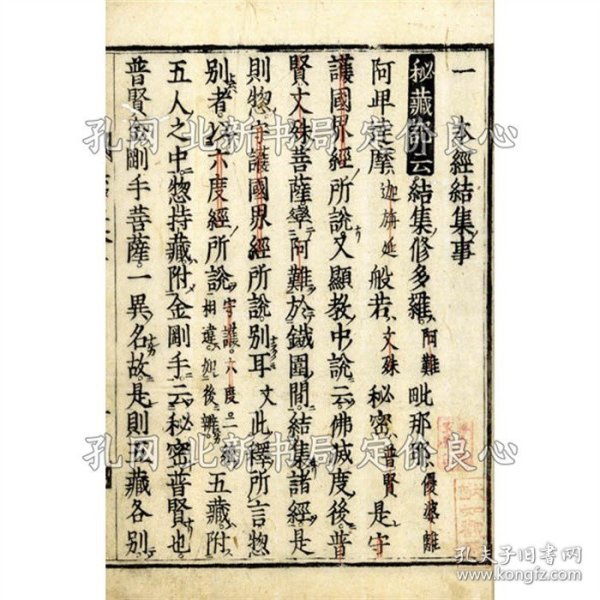 一 本經結集事
秘藏鈔云結集修多羅阿難毗那耶優婆離
阿毗達摩迦旃延般若文殊秘密普賢是守
護國界經所說又顯教中說云佛滅度後普
賢文殊菩薩率阿難於鐵圍間結集諸經是
則惣守護國界經所說別耳文此釋所言惣
別者六度經所說守護六度二經相違如後辨五藏附
五人之中惣持藏附金剛手云秘密普賢也
普賢金剛手菩薩一異名故是則五藏各別
孔网 北新书局 定价良心
孔网 北新书局 定价良心
孔网 北新书局 定价良心
孔夫子旧书网
www.kongfz.com